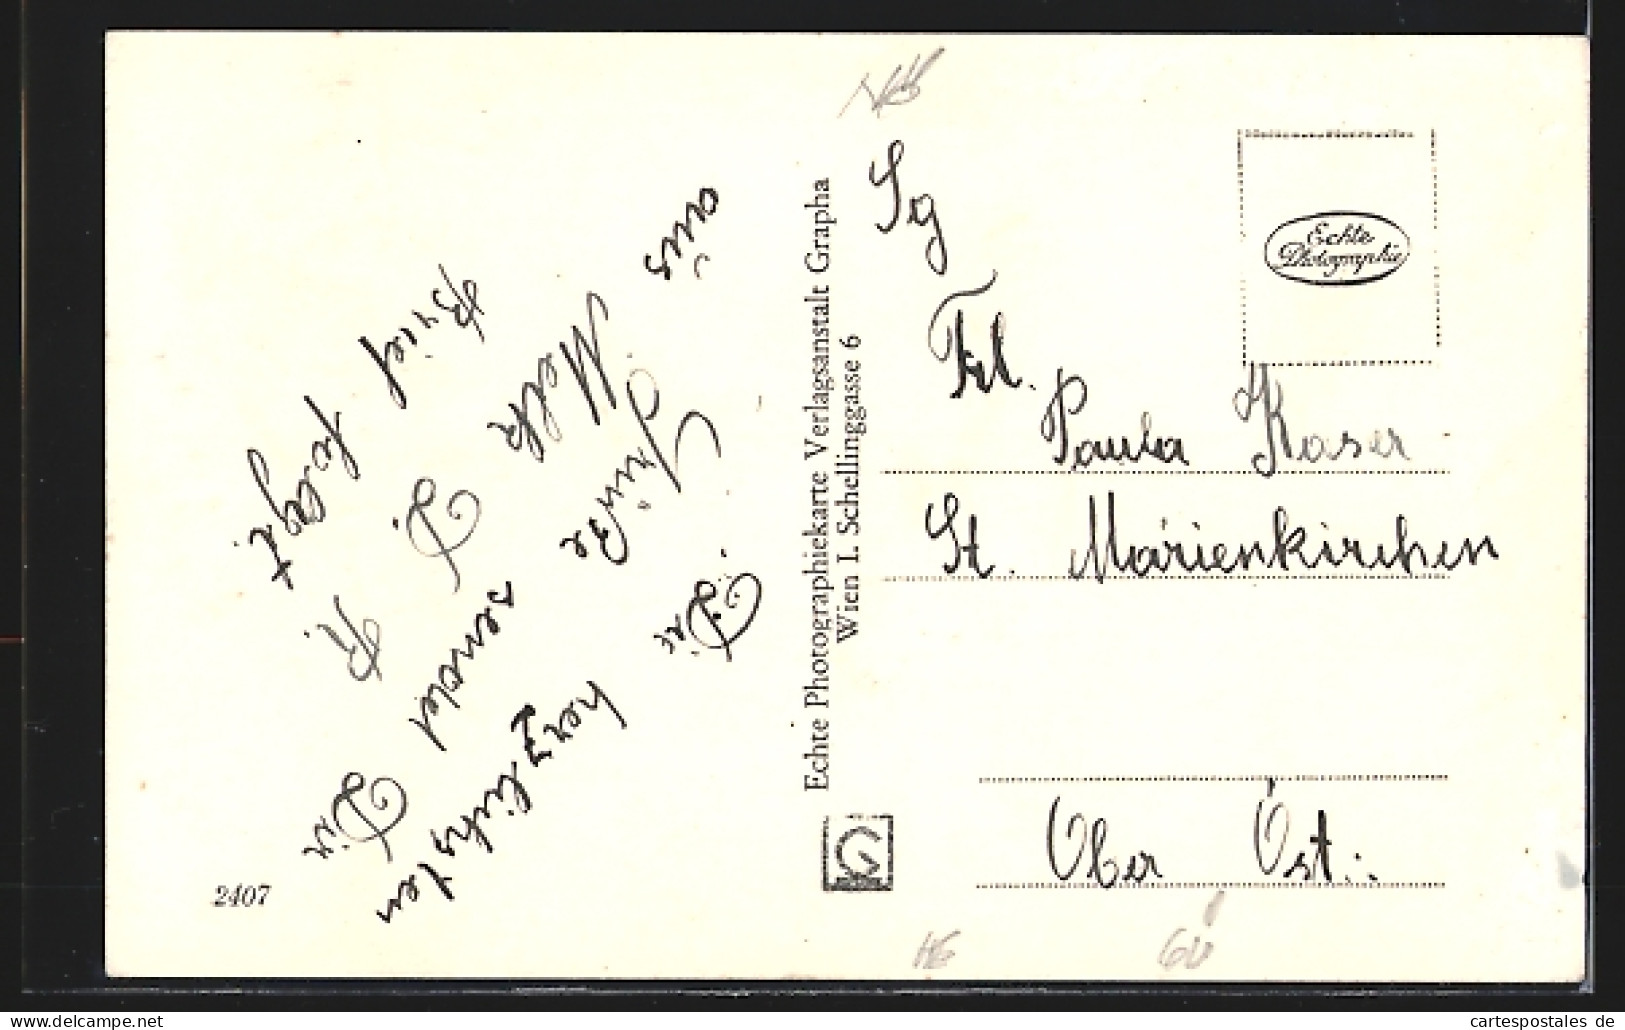 Die herzlichsten
Grüße sendet Dir
aus Melk D. R.
Brief folgt.
2407
Echte Photographiekarte Verlagsanstalt Grapha
Wien I. Schellinggasse 6
Echte
Photographie
Sg
Frl.
Paula Kaser
St. Marienkirchen
Ober Öst.:
cartespostales de